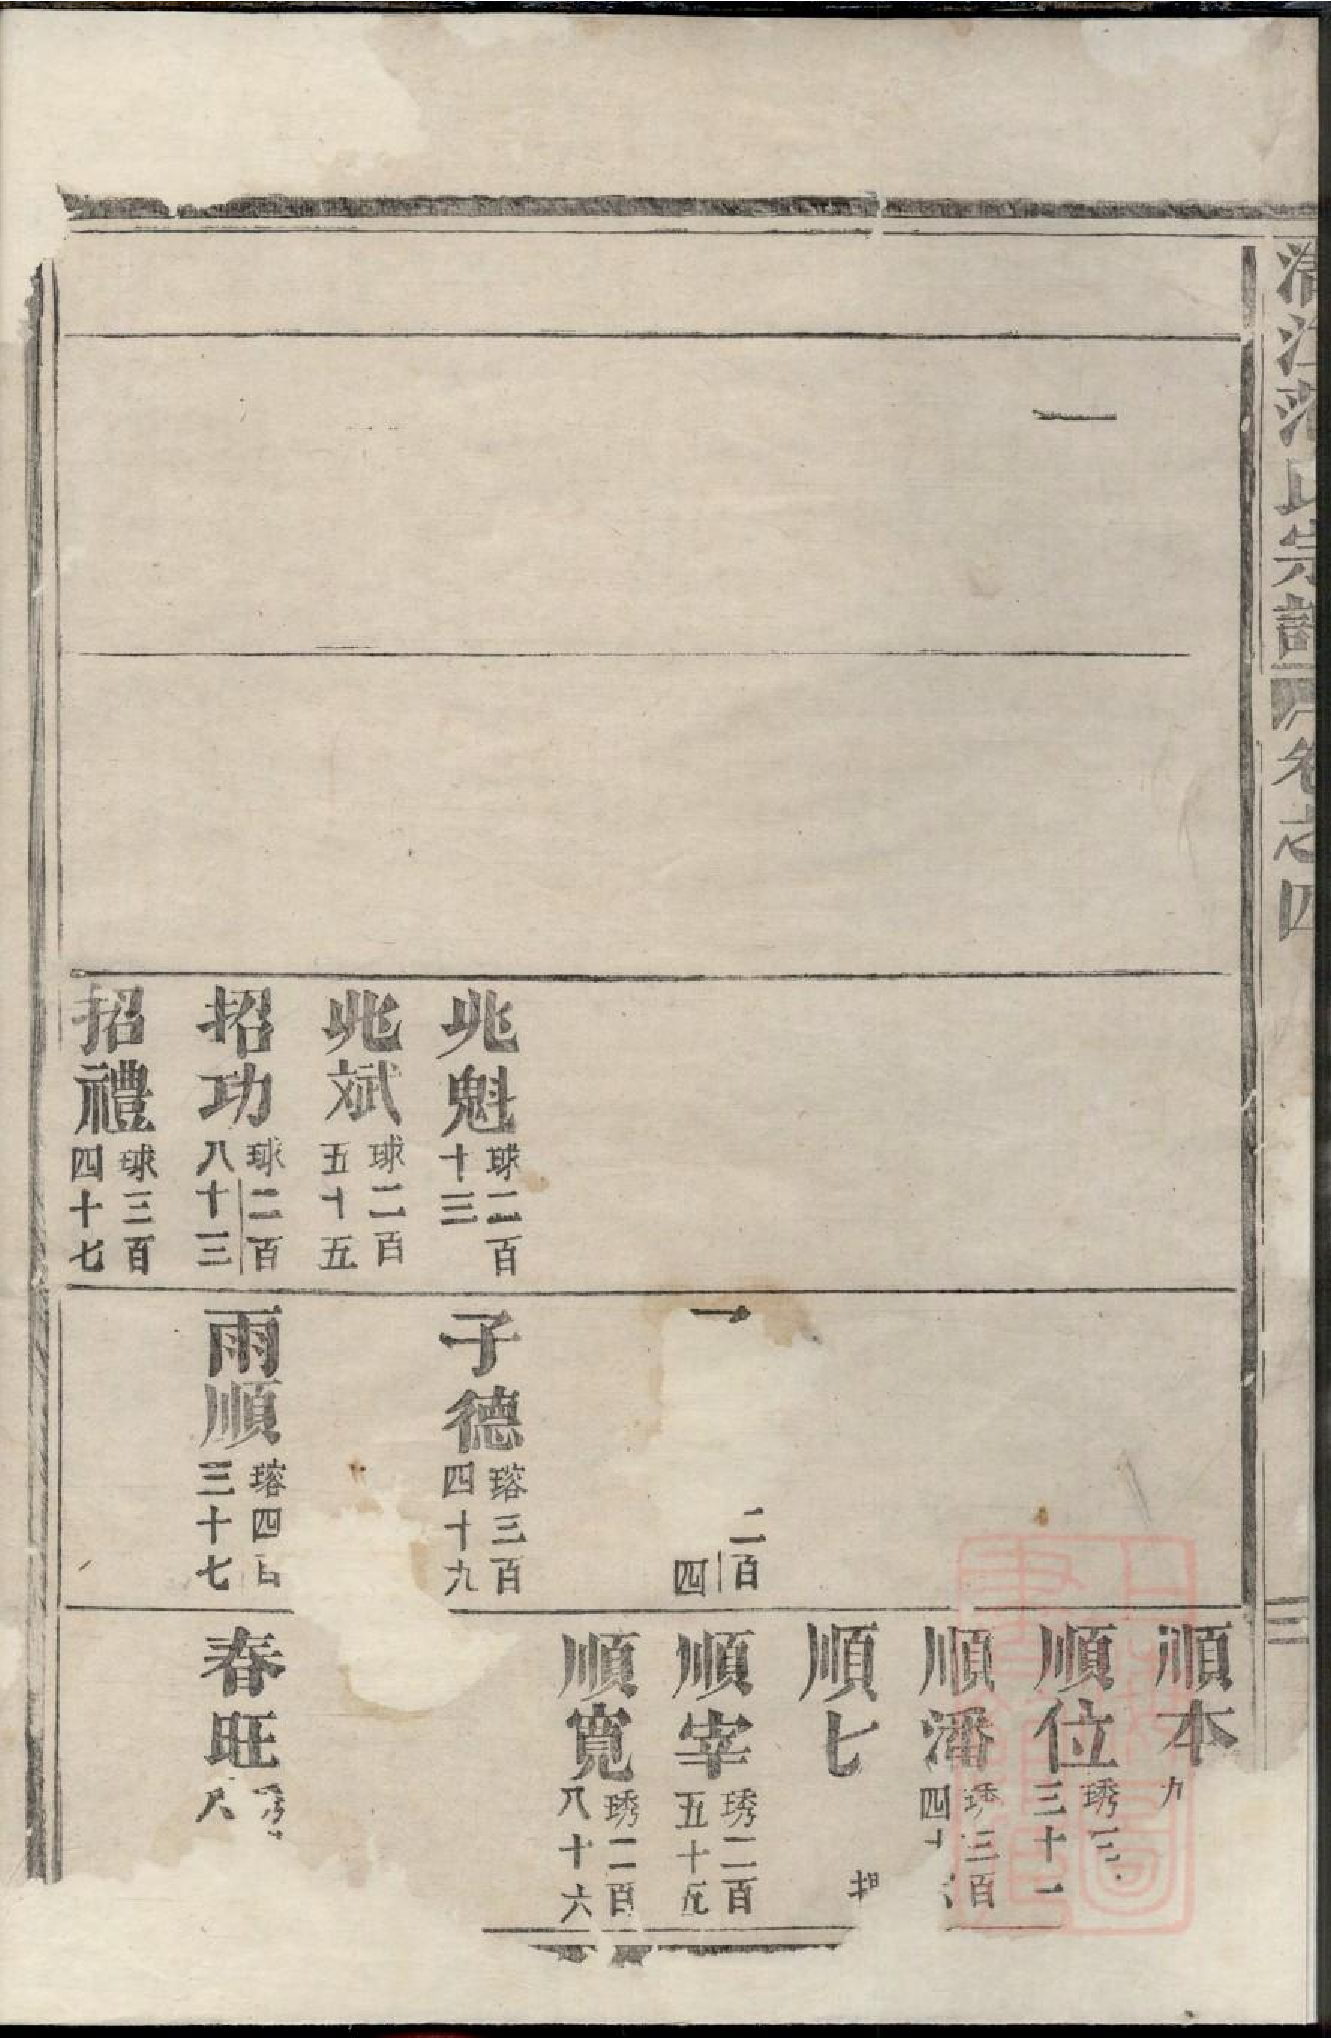 江范氏宗譜
卷之四
二
一
兆魁 球二百十三
兆斌 球二百五十五
招功 球二百八十三
招禮 球三百四十七
一
二百四
子德 瑢三百四十九
雨順 瑢四百三十七
順本 九
順位 琇三三十一
順潘 琇三百四十
順七
順宰 琇二百五十五
順寬 琇二百八十六
春旺 琇